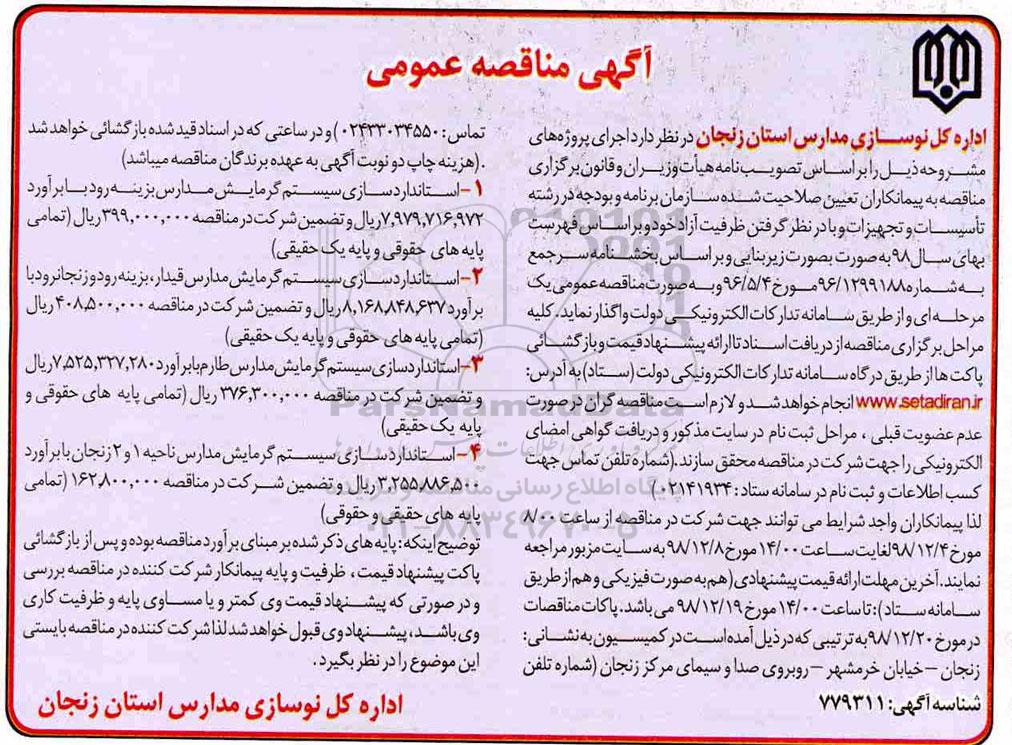 آگهی مناقصه عمومی
اداره کل نوسازی مدارس استان زنجان در نظر دارد اجرای پروژه‌های
مشروحه ذیل را بر اساس تصویب نامه هیأت وزیران و قانون برگزاری
مناقصه به پیمانکاران تعیین صلاحیت شده سازمان برنامه و بودجه در رشته
تأسیسات و تجهیزات و با در نظر گرفتن ظرفیت آزاد خود و بر اساس فهرست
بهای سال ۹۸ به صورت بصورت زیربنایی و بر اساس بخشنامه سرجمع
به شماره ۹۶/۱۲۹۹۱۸۸ مورخ ۹۶/۵/۴ و به صورت مناقصه عمومی یک
مرحله ای و از طریق سامانه تدارکات الکترونیکی دولت واگذار نماید. کلیه
مراحل برگزاری مناقصه از دریافت اسناد تا ارائه پیشنهاد قیمت و بازگشائی
پاکت ها از طریق درگاه سامانه تدارکات الکترونیکی دولت (ستاد) به آدرس:
www.setadiran.ir انجام خواهد شد و لازم است مناقصه گران در صورت
عدم عضویت قبلی ، مراحل ثبت نام در سایت مذکور و دریافت گواهی امضای
الکترونیکی را جهت شرکت در مناقصه محقق سازند. (شماره تلفن تماس جهت
کسب اطلاعات و ثبت نام در سامانه ستاد: ۰۲۱۴۱۹۳۴)
لذا پیمانکاران واجد شرایط می توانند جهت شرکت در مناقصه از ساعت ۸/۰۰
مورخ ۹۸/۱۲/۴ لغایت ساعت ۱۴/۰۰ مورخ ۹۸/۱۲/۸ به سایت مزبور مراجعه
نمایند. آخرین مهلت ارائه قیمت پیشنهادی (هم به صورت فیزیکی و هم از طریق
سامانه ستاد): تا ساعت ۱۴/۰۰ مورخ ۹۸/۱۲/۱۹ می باشد. پاکات مناقصات
در مورخ ۹۸/۱۲/۲۰ به ترتیبی که در ذیل آمده است در کمیسیون به نشانی:
زنجان – خیابان خرمشهر – روبروی صدا و سیمای مرکز زنجان (شماره تلفن
شناسه آگهی: ۷۷۹۳۱۱
تماس: ۰۲۴۳۳۰۳۴۵۵۰) و در ساعتی که در اسناد قید شده بازگشائی خواهد شد
. (هزینه چاپ دو نوبت آگهی به عهده برندگان مناقصه میباشد)
۱- استانداردسازی سیستم گرمایش مدارس بزینه رود با برآورد
۷,۹۷۹,۷۱۶,۹۷۲ ریال و تضمین شرکت در مناقصه ۳۹۹,۰۰۰,۰۰۰ ریال (تمامی
پایه های حقوقی و پایه یک حقیقی)
۲- استانداردسازی سیستم گرمایش مدارس قیدار، بزینه رود و زنجانرود با
برآورد ۸,۱۶۸,۸۴۸,۶۳۷ ریال و تضمین شرکت در مناقصه ۴۰۸,۵۰۰,۰۰۰ ریال
(تمامی پایه های حقوقی و پایه یک حقیقی)
۳- استانداردسازی سیستم گرمایش مدارس طارم با برآورد ۷,۵۲۵,۳۲۷,۲۸۰ ریال
و تضمین شرکت در مناقصه ۳۷۶,۳۰۰,۰۰۰ ریال (تمامی پایه های حقوقی و
پایه یک حقیقی)
۴- استانداردسازی سیستم گرمایش مدارس ناحیه ۱ و ۲ زنجان با برآورد
۳,۲۵۵,۸۸۶,۵۰۰ ریال و تضمین شرکت در مناقصه ۱۶۲,۸۰۰,۰۰۰ (تمامی
پایه های حقیقی و حقوقی)
توضیح اینکه: پایه های ذکر شده بر مبنای برآورد مناقصه بوده و پس از بازگشائی
پاکت پیشنهاد قیمت ، ظرفیت و پایه پیمانکار شرکت کننده در مناقصه بررسی
و در صورتی که پیشنهاد قیمت وی کمتر و یا مساوی پایه و ظرفیت کاری
وی باشد، پیشنهاد وی قبول خواهد شد لذا شرکت کننده در مناقصه بایستی
این موضوع را در نظر بگیرد.
اداره کل نوسازی مدارس استان زنجان
ParsNamadData
پایگاه اطلاع رسانی مناقصه و مزایده
۰۲۱-۸۸۳۴۹۶۷۰-۵